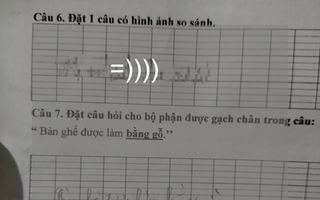 Câu 6. Đặt 1 câu có hình ảnh so sánh.
=))))
Câu 7. Đặt câu hỏi cho bộ phận được gạch chân trong câu:
“ Bàn ghế được làm bằng gỗ.”